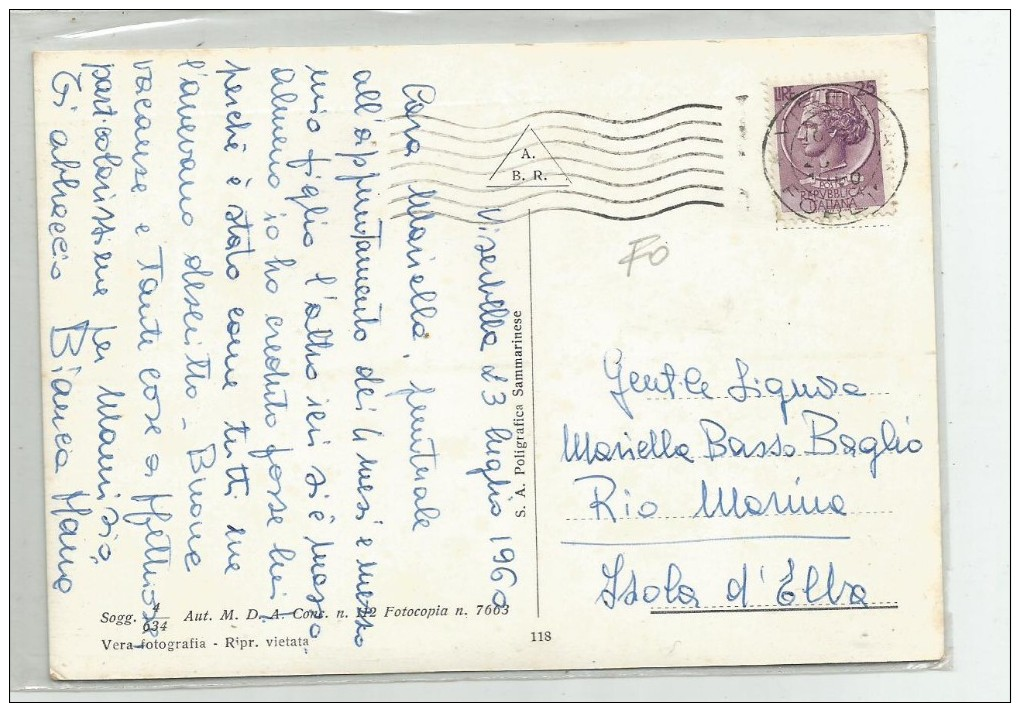 Viserbella 23 luglio 1960
Cara Mariella, puntuale
all'appuntamento dei 4 mesi e mezzo
mio figlio l'altro ieri si è mosso,
almeno io ho creduto fosse lui,
perchè è stato come tutti me
l'avevano descritto - Buone
vacanze e Tante cose affettuose,
particolarissime per Maurizio,
Ti abbraccio Bianca Maria
A.
B. R.
LIRE 25
POSTE
REPVBBLICA
ITALIANA
FO
Gentile Signora
Mariella Basso Baglio
Rio Marina
Isola d'Elba
S. A. Poligrafica Sammarinese
Sogg. 4/634 Aut. M. D. A. Cons. n. 112 Fotocopia n. 7663
Vera fotografia - Ripr. vietata
118